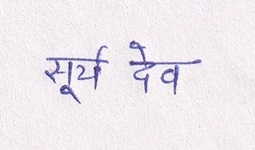 सूर्य देव